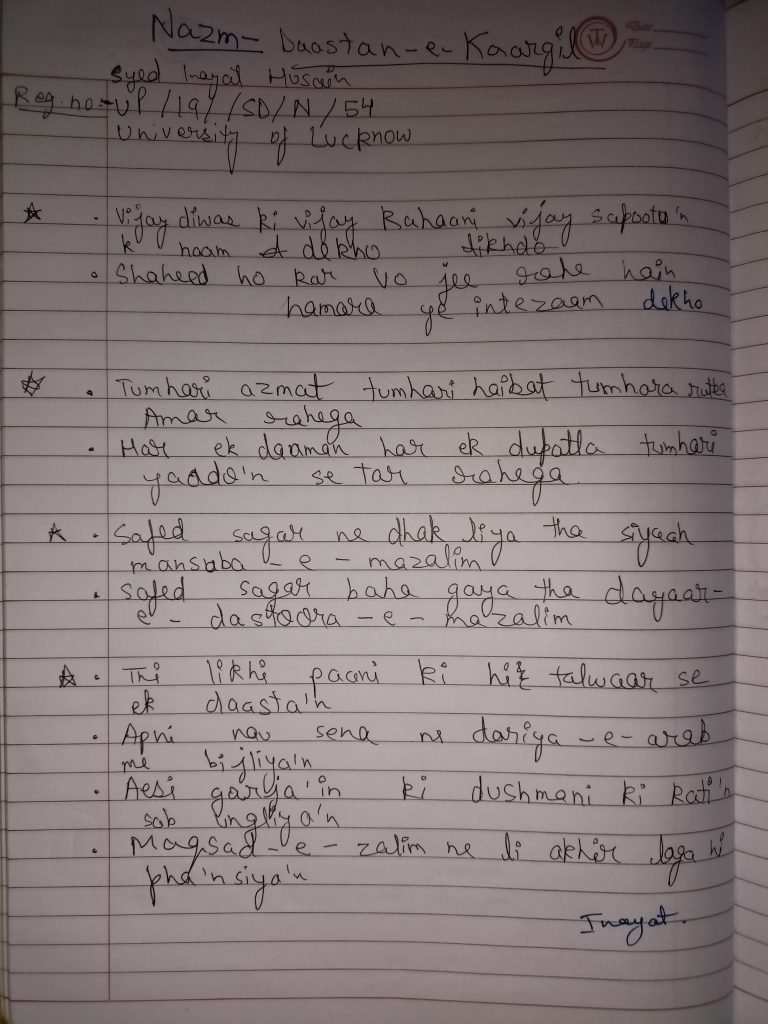 Nazm- Daastan-e-Kaargil
Date
Page
Syed Inayat Husain
Reg. no:- UP/19/SD/N/54
University of Lucknow
Vijay diwas ki vijay Kahaani vijay sapooto'n
k naam dekho
Shaheed ho kar vo jee rahe hain
hamara ye intezaam dekho
Tumhari azmat tumhari haibat tumhara rutba
Amar rahega
Har ek daaman har ek dupatta tumhari
yaado'n se tar rahega.
Safed sagar ne dhak liya tha siyaah
mansuba-e-mazalim
Safed sagar baha gaya tha dayaar-
e-dastoora-e-mazalim
Thi likhi paani ki hi talwaar se
ek daasta'n
Apni nav sena ne dariya-e-arab
me bijliya'n
Aesi garja'in ki dushmani ki kati'n
sab ungliya'n
Maqsad-e-zalim ne li akhir laga hi
pha'nsiya'n
Inayat.